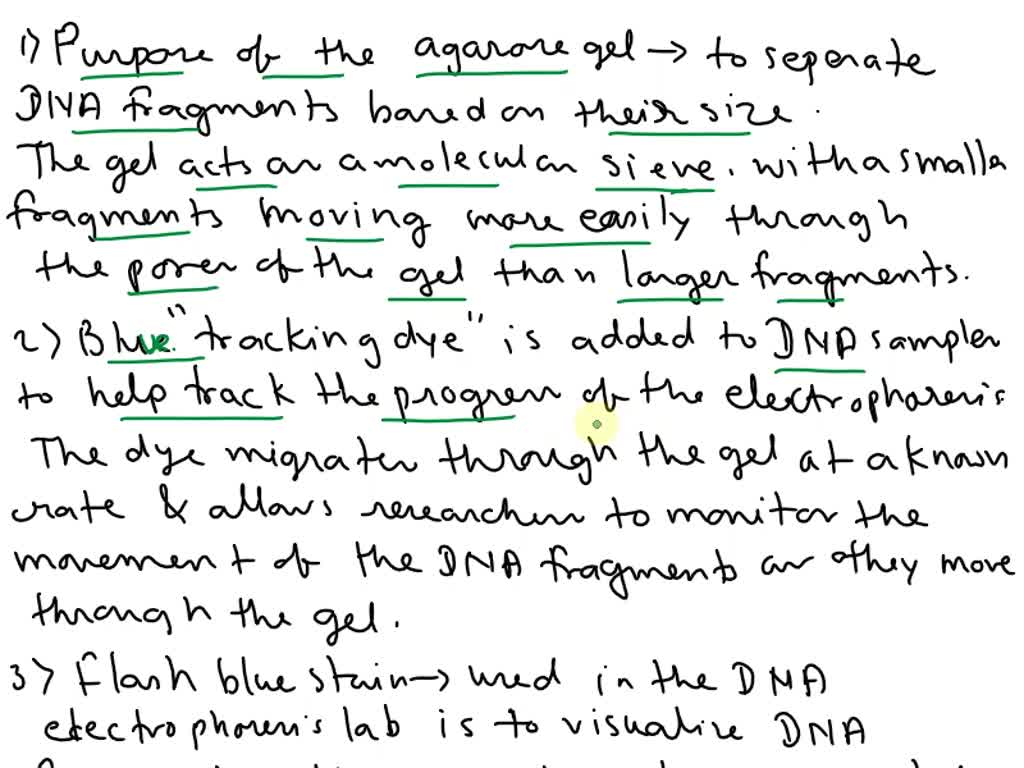 1) Purpose of the agarose gel → to seperate
DNA fragments based on their size.
The gel acts as a molecular sieve. with a smaller
fragments moving more easily through
the pores of the gel than larger fragments.
2) Blue "tracking dye" is added to DNA samples
to help track the progress of the electrophoresis
The dye migrates through the gel at a known
rate & allows researchers to monitor the
movement of the DNA fragments as they move
through the gel.
3) Flash blue stain → used in the DNA
electrophoresis lab is to visualise DNA